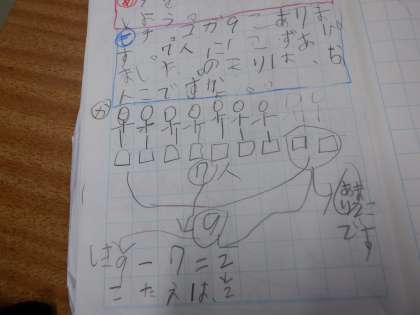 チョコが9こありま
す。7人に1こずつあげ
ました。のこりは、な
んこですか。
ず
7人
9
あまり
2こ
です
しき9-7=2
こたえは、2